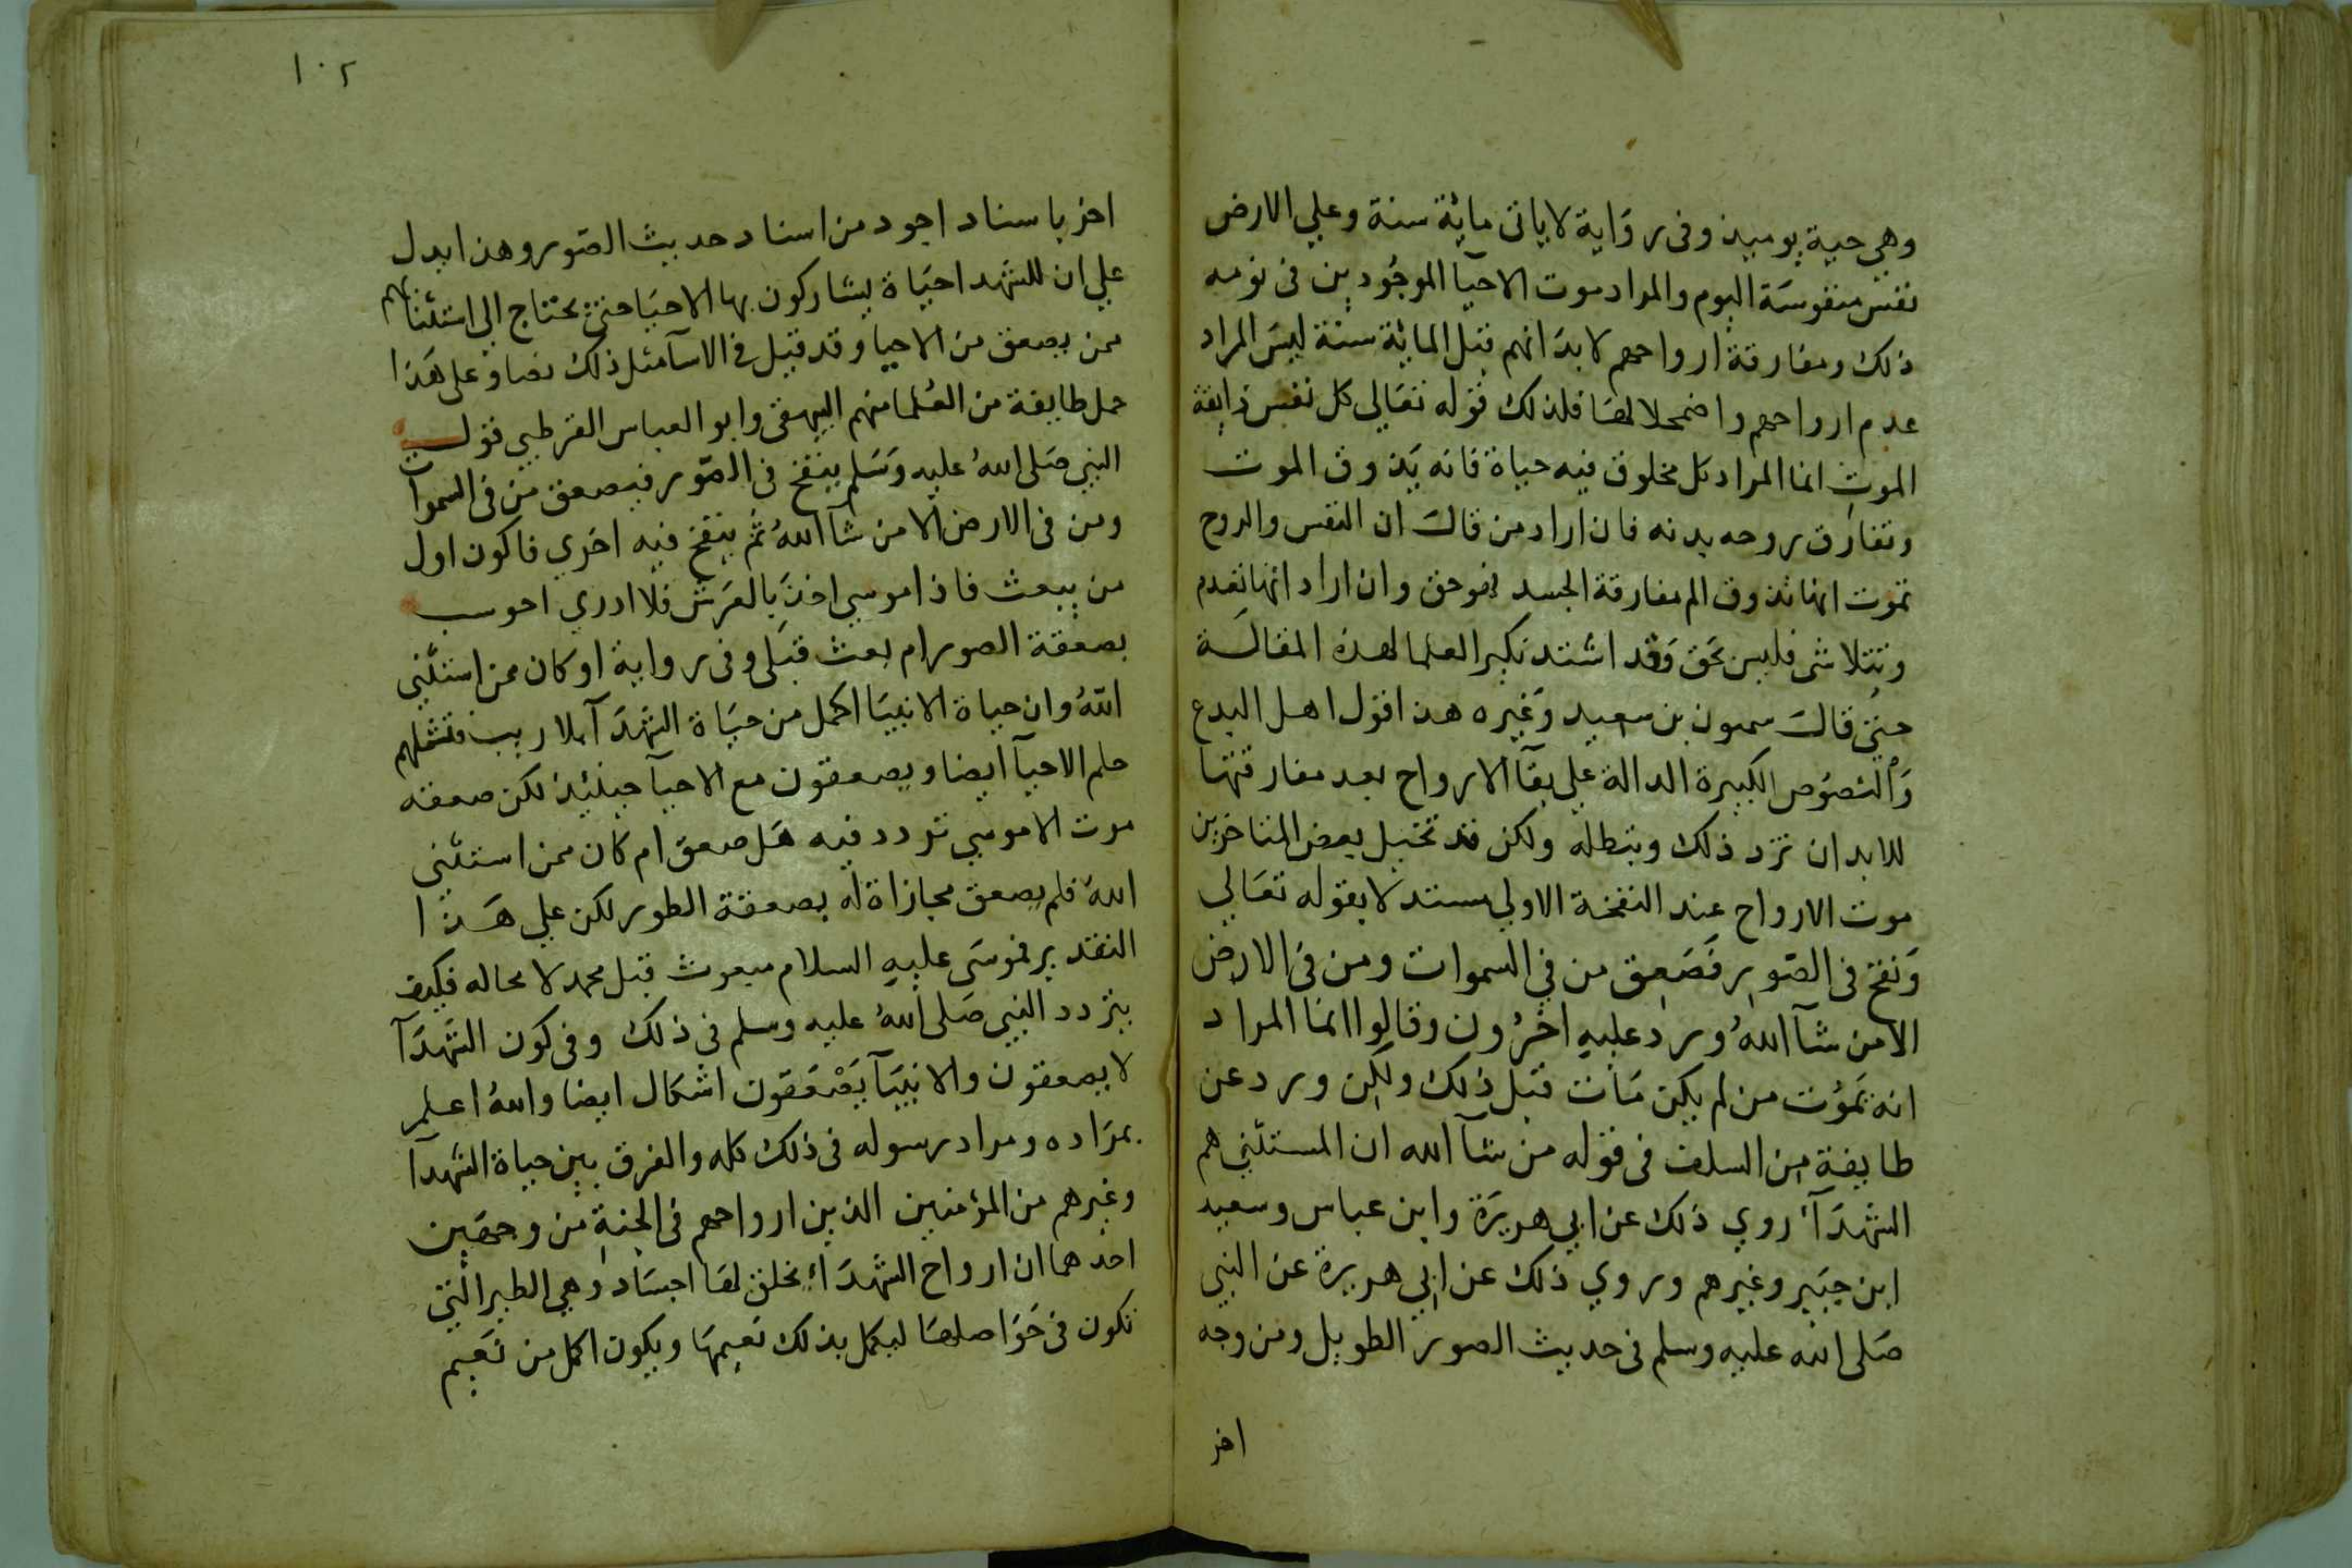 وهي حية يوميذ وفى رواية لاياتى ماية سنة وعلي الارض
نفس منفوسة اليوم والمراد موت الاحيآ الموجودين فى نومه
ذلك ومفارقة ارواحهم لابد انهم قبل الماية سنة ليس المراد
عدم ارواحهم واضمحلالها فلذلك قوله تعالي كل نفس ذايقة
الموت انما المراد كل مخلوق فيه حياة فانه يذوق الموت
وتفارق روحه بدنه فان اراد من قال ان النفس والروح
تموت انها تذوق الم مفارقة الجسد فهو حق وان اراد انها تعدم
وتتلاشى فليس بحق وقد اشتد نكير العلما لهذه المقالة
حتى قال سمون بن سعيد وغيره هذا قول اهل البدع
والنصوص الكبيرة الدالة علي بقآ الارواح بعد مفارقتها
للابدان ترد ذلك وتبطله ولكن قد تخيل بعض المتاخرين
موت الارواح عند النفخة الاولي مستدلا بقوله تعالي
ونفخ فى الصور فصعق من في السموات ومن فى الارض
الا من شآ الله ورد عليه اخرون وقالوا انما المراد
انه يموت من لم يكن مات قبل ذلك ولكن ورد عن
طايفة من السلف فى قوله من شآ الله ان المستثني هم
الشهدآء روي ذلك عن ابي هريرة وابن عباس وسعيد
ابن جبير وغيرهم وروي ذلك عن ابي هريرة عن النبي
صلى الله عليه وسلم فى حديث الصور الطويل ومن وجه
اخر
١٠٢
اخر باسناد اجود من اسناد حديث الصور وهذا يدل
علي ان للشهدا حياة يشاركون بها الاحيا حتى يحتاج الي استثنائهم
ممن يصعق من الاحيا وقد قيل فى الاسآ مثل ذلك نصا وعلى هذا
حمل طايفة من العلما منهم البيهقى وابو العباس القرطبي قول
النبي صلى الله عليه وسلم ينفخ فى الصور فيصعق من فى السموات
ومن فى الارض الا من شآ الله ثم ينفخ فيه اخري فاكون اول
من يبعث فاذا موسي اخذ بالعرش فلا ادري احوسب
بصعقة الصور ام بعث قبلى وفى رواية او كان ممن استثني
الله وان حياة الانبيا اكمل من حياة الشهدآ بلا ريب فتشملهم
حلم الاحيآ ايضا ويصعقون مع الاحيآ حينئذ لكن صعقه
موت الا موسي تردد فيه هل صعق ام كان ممن استثني
الله فلم يصعق مجازاة له بصعقة الطور لكن علي هذا
التقدير فموسى عليه السلام مبعوث قبل محمد لا محاله فكيف
يتردد النبي صلى الله عليه وسلم فى ذلك وفى كون الشهدآ
لا يصعقون والانبيآ يصعقون اشكال ايضا والله اعلم
بمراده ومراد رسوله فى ذلك كله والفرق بين حياة الشهدآ
وغيرهم من المؤمنين الذين ارواحهم فى الجنة من وجهين
احدهما ان ارواح الشهداء يخلق لها اجساد وهي الطير التي
تكون فى حواصلها ليكمل بذلك نعيمها ويكون اكمل من نعيم